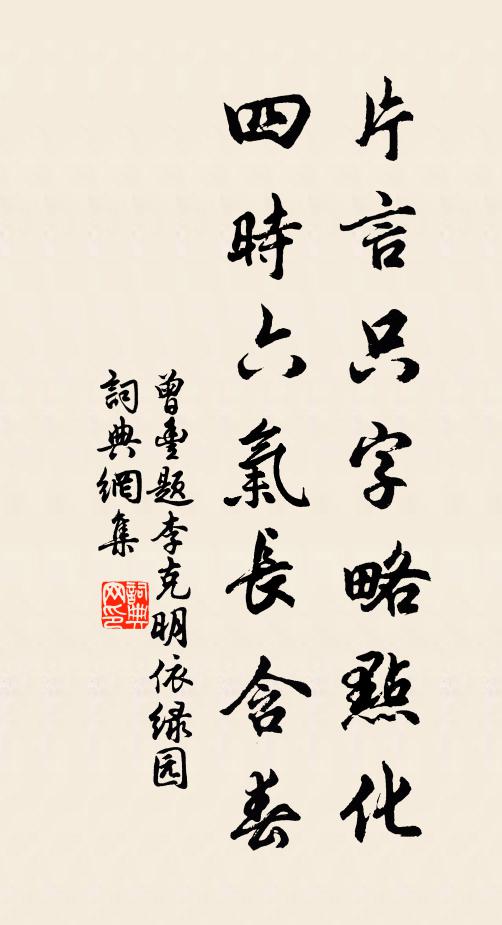 片言只字略點化
四時六氣長含春
曾豐題李克明依緑园
詞典網集
詞典网印